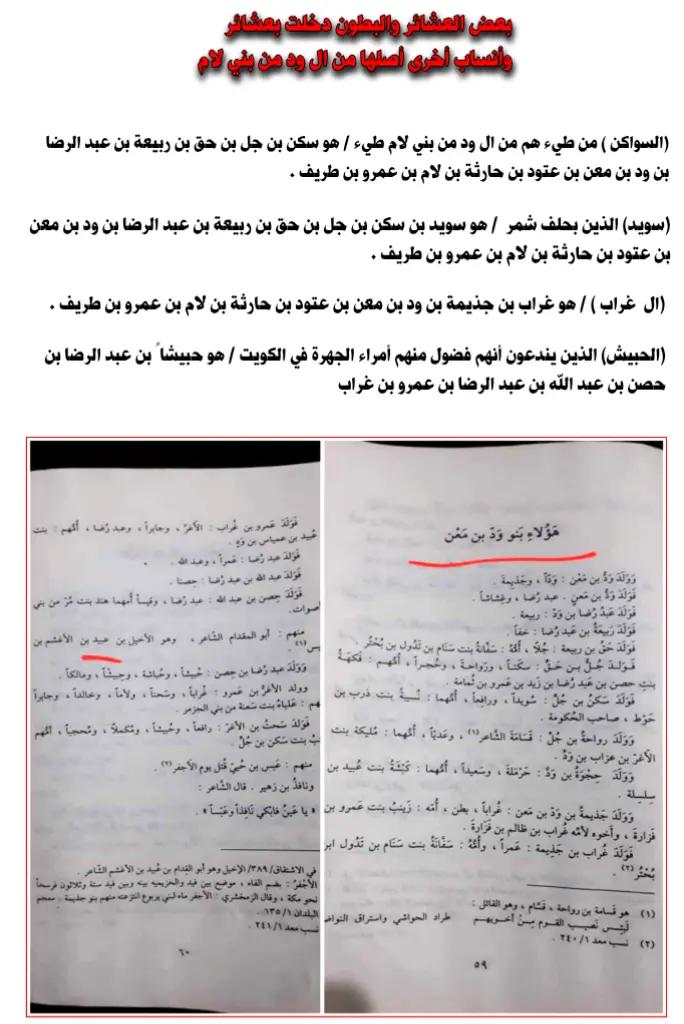 بعض العشائر والبطون دخلت بعشائر
وأنساب أخرى أصلها من ال ود من بني لام
(السواكن ) من طيء هم من ال ود من بني لام طيء / هو سكن بن جل بن حق بن ربيعة بن عبد الرضا
بن ود بن معن بن عتود بن حارثة بن لام بن عمرو بن طريف .
(سويد) الذين بحلف شمر / هو سويد بن سكن بن جل بن حق بن ربيعة بن عبد الرضا بن ود بن معن
بن عتود بن حارثة بن لام بن عمرو بن طريف .
(ال غراب ) / هو غراب بن جذيمة بن ود بن معن بن عتود بن حارثة بن لام بن عمرو بن طريف .
(الحبيش) الذين يندعون أنهم فضول منهم أمراء الجهرة في الكويت / هو حبيشاً بن عبد الرضا بن
حصن بن عبد الله بن عبد الرضا بن عمرو بن غراب
هَؤُلاءِ بَنو وَدّ بن مَعْن
وَوَلَدَ وَدُّ بن مَعْن : وَدّاً ، وجَذِيمة .
فَوَلَدَ وَدُّ بن مَعْنٍ . عبد رُضا ، وغِشاشاً .
فَوَلَدَ عَبْدُ رُضا بن وَدّ : ربيعة .
فَوَلَدَ رَبِيعَةُ بن عبد رُضا : حَقاً .
فَوَلَدَ حَقُّ بن ربيعة : جُلاً ، أُمّهُ : سَفّانَةُ بنت سَنام بن تَدُول بن بُحْتُر .
فَوَلَدَ جُلُّ بن حَقٍّ : سكَناً ، ورَواحة ، وحُجراً ، أُمّهم : فَكهَةُ
بنت حصن بن عَبد رُضا بن زيد بن عمرو بن ثُمامة .
فَوَلَدَ سَكَنُ بن جُلٍّ : سُوَيداً ، ورافِعاً ، أُمّهما : نُسيبةُ بنت ذرب بن
حَوْط ، صاحب الحُكومة .
وَوَلَدَ رواحةُ بن جُلّ : قَسَامَةَ الشَّاعر(١) ، وعَدِيّاً ، أُمّهما : مُليكة بنت
الأَغرّ بن غراب بن وَدٍّ .
وَوَلَدَ حِجْوَةُ بن وَدٍّ : حَرْمَلة ، وسَعيداً ، أُمّهما : كَبْشَةُ بنت عُبيد بن
سِلسِلة .
وَوَلَدَ جَذيمةُ بن وَدّ بن مَعن : غُراباً ، بطن ، أُمّه : زَينبُ بنت عمرو بن
فَزارة ، وأخوه لأمّه غُراب بن ظالم بن فَزارَة .
فَوَلَدَ غُراب بن جَذِيمة : عَمراً ، وأُمُّهُ : سَفّانَةُ بنت سَنام بن تَدُول ابن
بُحْتُر(٢) .
(١) هو قسامة بن رواحة ، قسّام ، وهو القائل :
لَبِئْس نَصيب القوم مِنْ أخويهم طراد الحواشي واستراق النواضـ
(٢) نسب معد ٢٤٠/١ .
٥٩
فَوَلَدَ عَمرو بن غُراب : الأَغرّ ، وجابراً ، وعبد رُضا ، أُمّهم : بنت
عُبيد بن عميأس بن وَدٍ .
فَوَلَدَ عبد رُضا : عَمراً ، وعبد الله .
فَوَلَدَ عبد الله بن عبد رُضا : حِصنا .
فَوَلَدَ حِصن بن عبد الله : عبد رُضا ، وقيساً أمهما هند بنت مُرّ من بني
أصوات .
منهم : أبو المقدام الشّاعر ، وهو الأخيل بن عبيد بن الأغشم بن
يس(١) .
وَوَلَدَ عبد رضا بن حِصن : حُبيشاً ، وحُباشة ، وحبيشاً ، ومالكاً .
وولد الأَغرُّ بن عمرو : غُراباً ، وسَحتاً ، ولأماً ، وخالداً ، وجابراً
هم : عَلْباءُ بنت سعنة من بني الجرمز .
فَوَلَدَ سَحتُ بن الأَغرّ : رافعاً ، وحُبيشاً ، ومُكملاً ، ومُحجباً ، أُمّهم
بُ بنت سكن بن جُلّ .
منهم : عَبس بن حُبيّ قُتل يوم الأجفر(٢) .
ونافذُ بن زهير . قال الشّاعر :
« يا عَينُ فابكي نَافِذاً وعَبْساً » .
في الاشتقاق/٣٨٩/ الإخيل وهو أبو القدام بن عُبيد بن الأغشم الشّاعر .
الأجْفُر : بضم الفاء ، موضع بين فيد والخزيمية بينه وبين فيد ستة وثلاثون فرسخاً
نحو مكة ، وقال الزمخشري : الأجفر ماء لبني يربوع انتزعته منهم بنو جذيمة . معجم
البلدان ١٣٥/١ .
نسب معد ٢٤١/١ .
٦٠